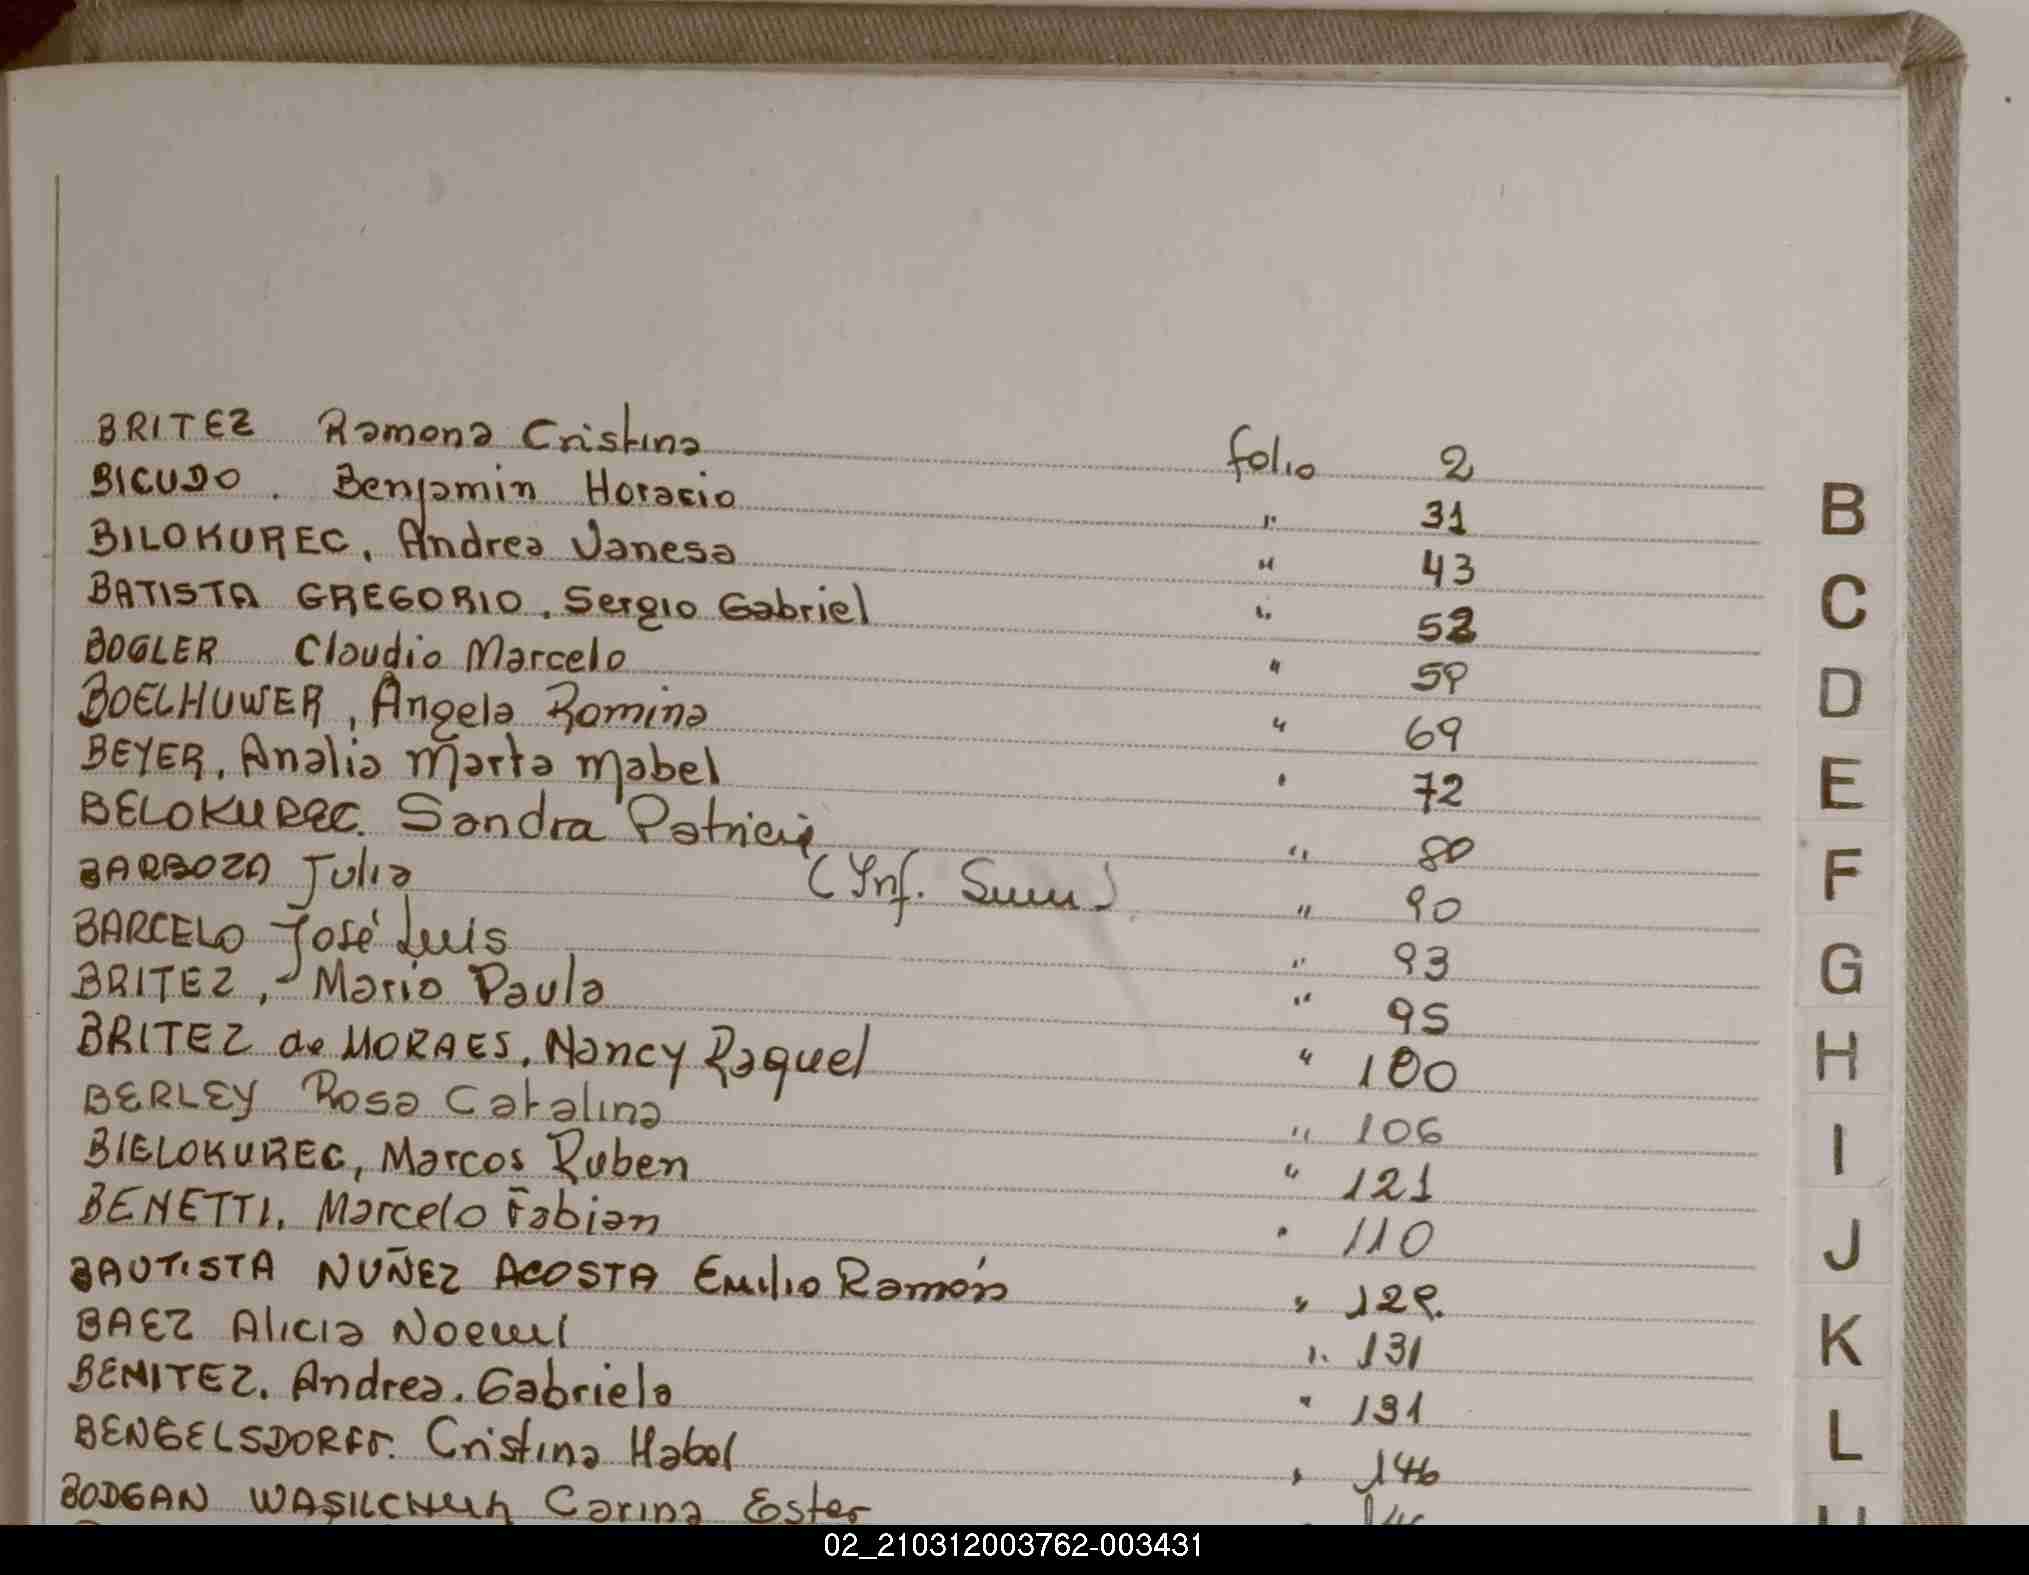 BRITEZ Ramona Cristina folio 2
BICUDO . Benjamin Horacio " 31
BILOKUREC, Andrea Vanesa " 43
BATISTA GREGORIO, Sergio Gabriel " 52
BOGLER Claudio Marcelo " 59
BOELHUWER, Ángela Romina " 69
BEYER, Analia Marta Mabel " 72
BELOKUREC. Sandra Patricia " 80
BARBOZA Julia (Inf. Sum) " 90
BARCELO José Luis " 93
BRITEZ, Maria Paula " 95
BRITEZ de MORAES, Nancy Raquel " 100
BERLEY Rosa Catalina " 106
BIELOKUREC, Marcos Ruben " 121
BENETTI, Marcelo Fabian " 110
BAUTISTA NUÑEZ ACOSTA Emilio Ramón " 129.
BAEZ Alicia Noemí " 131
BENITEZ, Andrea. Gabriela " 131
BENGELSDORFF. Cristina Mabel " 146
BODGAN WASILCHUK Carina Ester
B
C
D
E
F
G
H
I
J
K
L
02_210312003762-003431